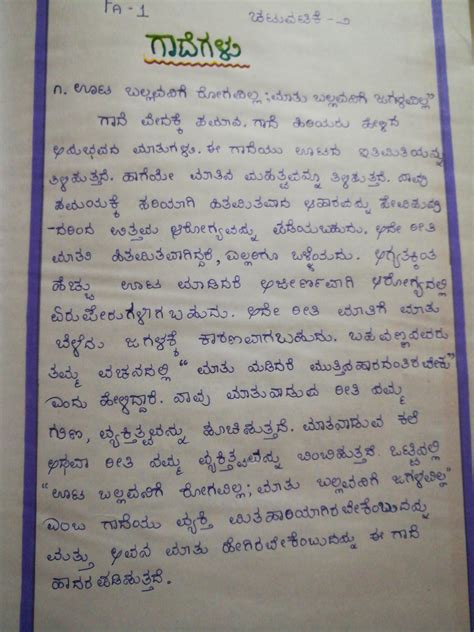 FA - 1
ಚಟುವಟಿಕೆ - ೨
ಗಾದೆಗಳು
೧. ಊಟ ಬಲ್ಲವನಿಗೆ ರೋಗವಿಲ್ಲ ; ಮಾತು ಬಲ್ಲವನಿಗೆ ಜಗಳವಿಲ್ಲ"
ಗಾದೆ ವೇದಕ್ಕೆ ಸಮಾನ. ಗಾದೆ ಹಿರಿಯರು ಹೇಳಿದ
ಅನುಭವದ ಮಾತುಗಳು. ಈ ಗಾದೆಯು ಊಟದ ಇತಿಮಿತಿಯನ್ನು
ತಿಳಿಸುತ್ತದೆ. ಹಾಗೆಯೇ ಮಾತಿನ ಮಹತ್ವವನ್ನೂ ತಿಳಿಸುತ್ತದೆ. ನಾವು
ಸಮಯಕ್ಕೆ ಸರಿಯಾಗಿ ಹಿತಮಿತವಾದ ಆಹಾರವನ್ನು ಸೇವಿಸುವು
-ದರಿಂದ ಉತ್ತಮ ಆರೋಗ್ಯವನ್ನು ಪಡೆಯಬಹುದು. ಅದೇ ರೀತಿ
ಮಾತು ಹಿತಮಿತವಾಗಿದ್ದರೆ, ಎಲ್ಲರಿಗೂ ಒಳ್ಳೆಯದು. ಅಗತ್ಯಕ್ಕಿಂತ
ಹೆಚ್ಚು ಊಟ ಮಾಡಿದರೆ ಅಜೀರ್ಣವಾಗಿ ಆರೋಗ್ಯದಲ್ಲಿ
ಏರುಪೇರುಗಳಾಗಬಹುದು. ಅದೇ ರೀತಿ ಮಾತಿಗೆ ಮಾತು
ಬೆಳೆದು ಜಗಳಕ್ಕೆ ಕಾರಣವಾಗಬಹುದು. ಬಸವಣ್ಣನವರು
ತಮ್ಮ ವಚನದಲ್ಲಿ " ಮಾತು ನುಡಿದರೆ ಮುತ್ತಿನಹಾರದಂತಿರಬೇಕು"
ಎಂದು ಹೇಳಿದ್ದಾರೆ. ನಾವು ಮಾತನಾಡುವ ರೀತಿ ನಮ್ಮ
ಗುಣ, ವ್ಯಕ್ತಿತ್ವವನ್ನು ಸೂಚಿಸುತ್ತದೆ. ಮಾತನಾಡುವ ಕಲೆ
ಅಥವಾ ರೀತಿ ನಮ್ಮ ವ್ಯಕ್ತಿತ್ವವನ್ನು ಬಿಂಬಿಸುತ್ತದೆ. ಒಟ್ಟಿನಲ್ಲಿ
"ಊಟ ಬಲ್ಲವನಿಗೆ ರೋಗವಿಲ್ಲ ; ಮಾತು ಬಲ್ಲವನಿಗೆ ಜಗಳವಿಲ್ಲ"
ಎಂಬ ಗಾದೆಯು ವ್ಯಕ್ತಿ ಮಿತಹಾರಿಯಾಗಿರಬೇಕೆಂಬುದನ್ನು
ಮತ್ತು ಅವನ ಮಾತು ಹೇಗಿರಬೇಕೆಂಬುದನ್ನು ಈ ಗಾದೆ
ಸಾದರಪಡಿಸುತ್ತದೆ.